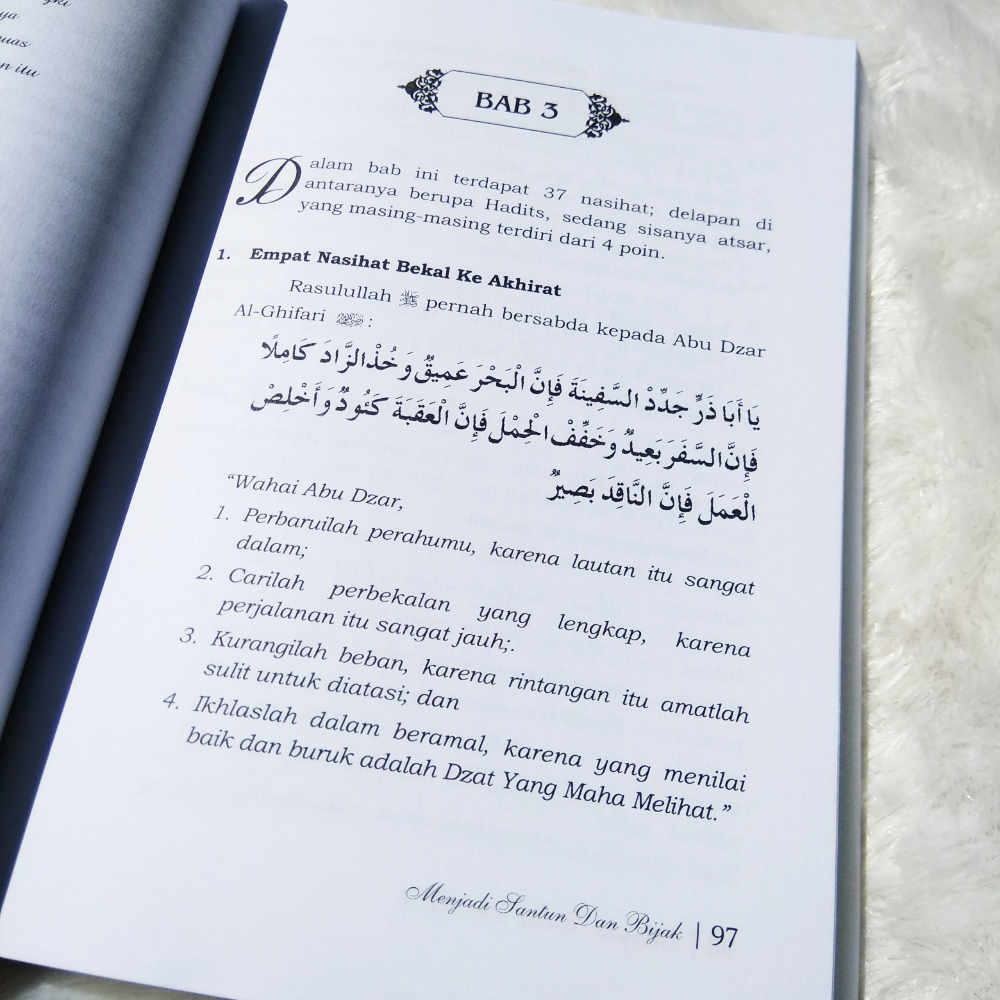 ya
uas
n itu
BAB 3
Dalam bab ini terdapat 37 nasihat; delapan di
antaranya berupa Hadits, sedang sisanya atsar,
yang masing-masing terdiri dari 4 poin.
1. Empat Nasihat Bekal Ke Akhirat
Rasulullah ﷺ pernah bersabda kepada Abu Dzar
Al-Ghifari :
يَا أَبَا ذَرٍّ جَدِّدْ السَّفِينَةَ فَإِنَّ الْبَحْرَ عَمِيقٌ وَخُذْ الزَّادَ كَامِلًا
فَإِنَّ السَّفَرَ بَعِيدٌ وَخَفِّفْ الْحِمْلَ فَإِنَّ الْعَقَبَةَ كَئُودٌ وَأَخْلِصْ
الْعَمَلَ فَإِنَّ النَّاقِدَ بَصِيرٌ
“Wahai Abu Dzar,
1. Perbaruilah perahumu, karena lautan itu sangat
dalam;
2. Carilah perbekalan yang lengkap, karena
perjalanan itu sangat jauh;.
3. Kurangilah beban, karena rintangan itu amatlah
sulit untuk diatasi; dan
4. Ikhlaslah dalam beramal, karena yang menilai
baik dan buruk adalah Dzat Yang Maha Melihat.”
Menjadi Santun Dan Bijak | 97